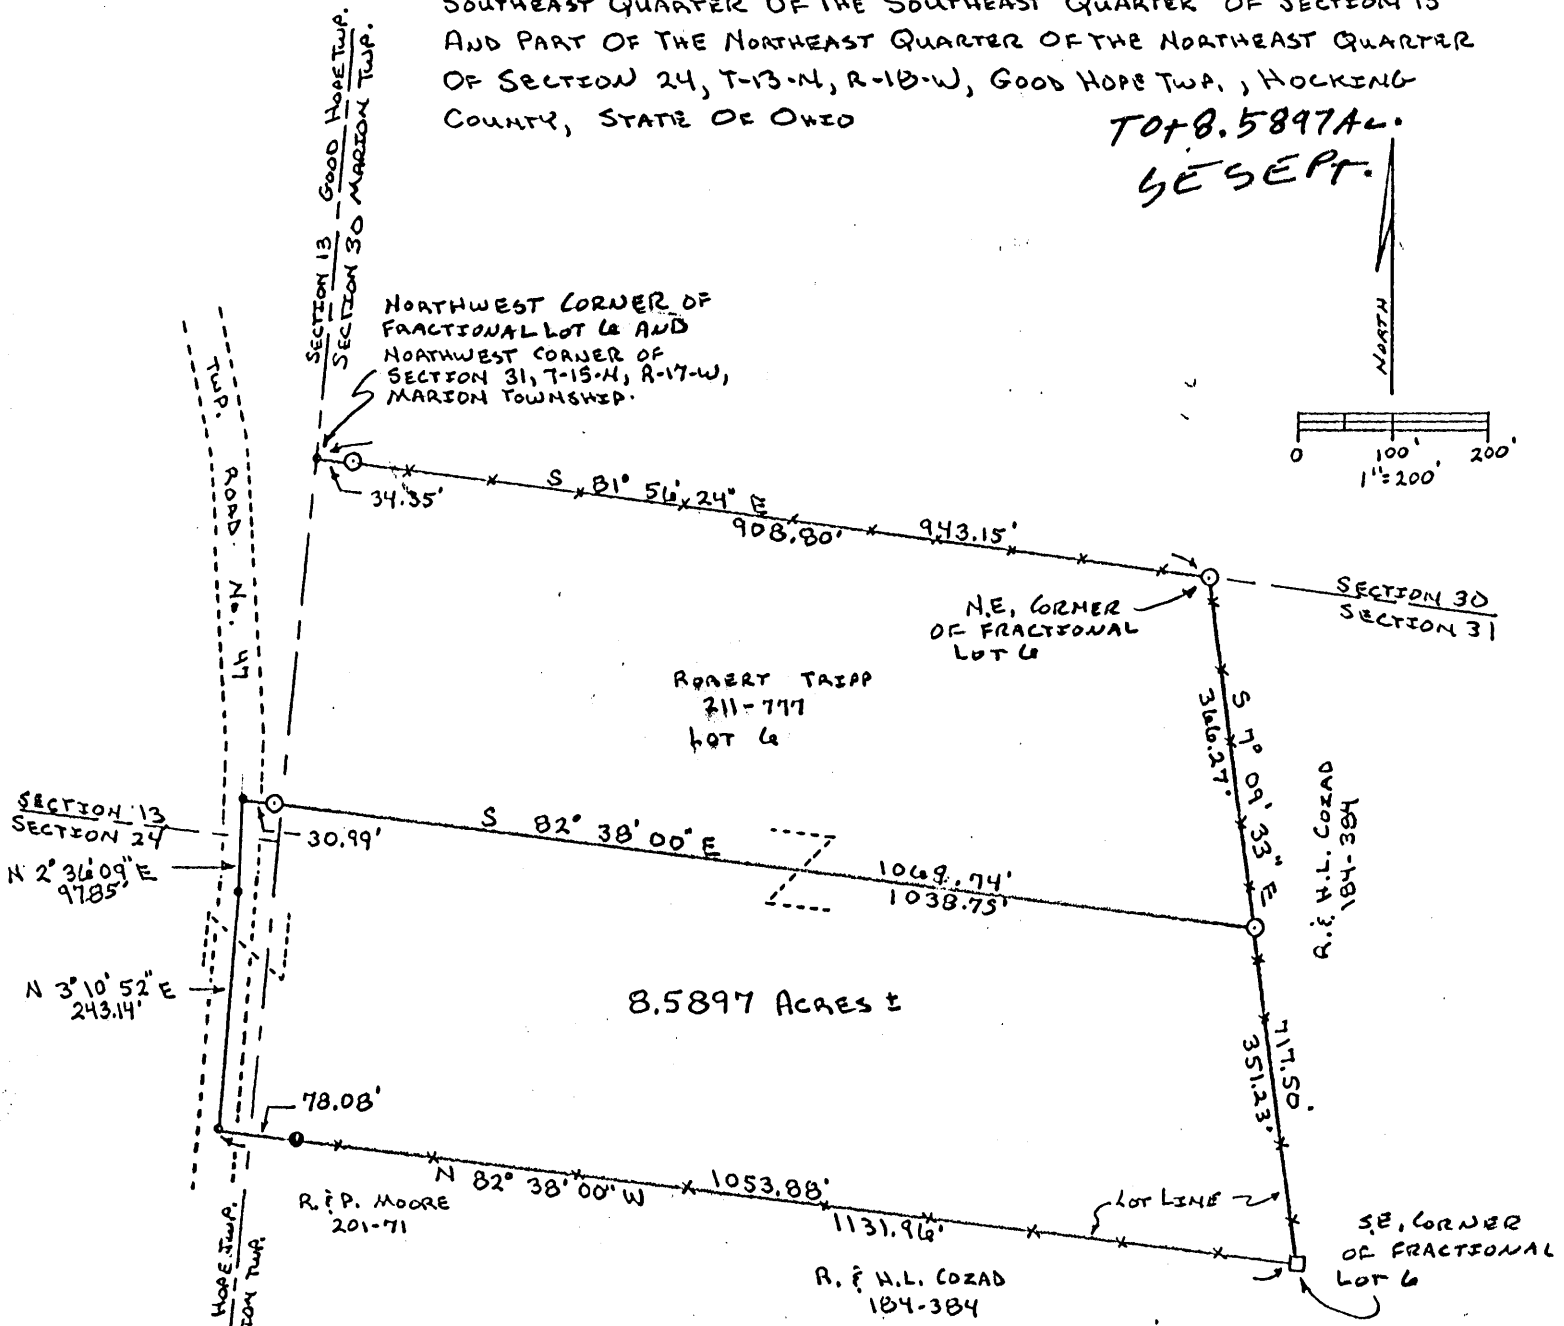 SOUTHEAST QUARTER OF THE SOUTHEAST QUARTER OF SECTION 13
AND PART OF THE NORTHEAST QUARTER OF THE NORTHEAST QUARTER
OF SECTION 24, T-13-N, R-18-W, GOOD HOPE TWP., HOCKING
COUNTY, STATE OF OHIO
TOT 8.5897 Ac.
SE SE PT.
SECTION 13 - GOOD HOPE TWP.
SECTION 30 MARION TWP.
NORTHWEST CORNER OF
FRACTIONAL LOT 6 AND
NORTHWEST CORNER OF
SECTION 31, T-15-N, R-17-W,
MARION TOWNSHIP.
NORTH
0 100' 200'
1"=200'
TWP. ROAD No. 47
34.35'
S 81° 56' 24" E
908.80' 943.15'
N.E. CORNER
OF FRACTIONAL
LOT 6
SECTION 30
SECTION 31
ROBERT TRIPP
211-777
LOT 6
S 7° 09' 33" E
366.27'
R. & H.L. COZAD
184-384
SECTION 13
SECTION 24
30.99'
S 82° 38' 00" E
1069.74'
1038.75'
N 2° 36' 09" E
97.85'
N 3° 10' 52" E
243.14'
8.5897 ACRES ±
717.50'
351.23'
78.08'
N 82° 38' 00" W
1053.88'
1131.96'
LOT LINE
R. & P. MOORE
201-71
R. & H.L. COZAD
184-384
S.E. CORNER
OF FRACTIONAL
LOT 6
HOPE TWP.
ION TWP.